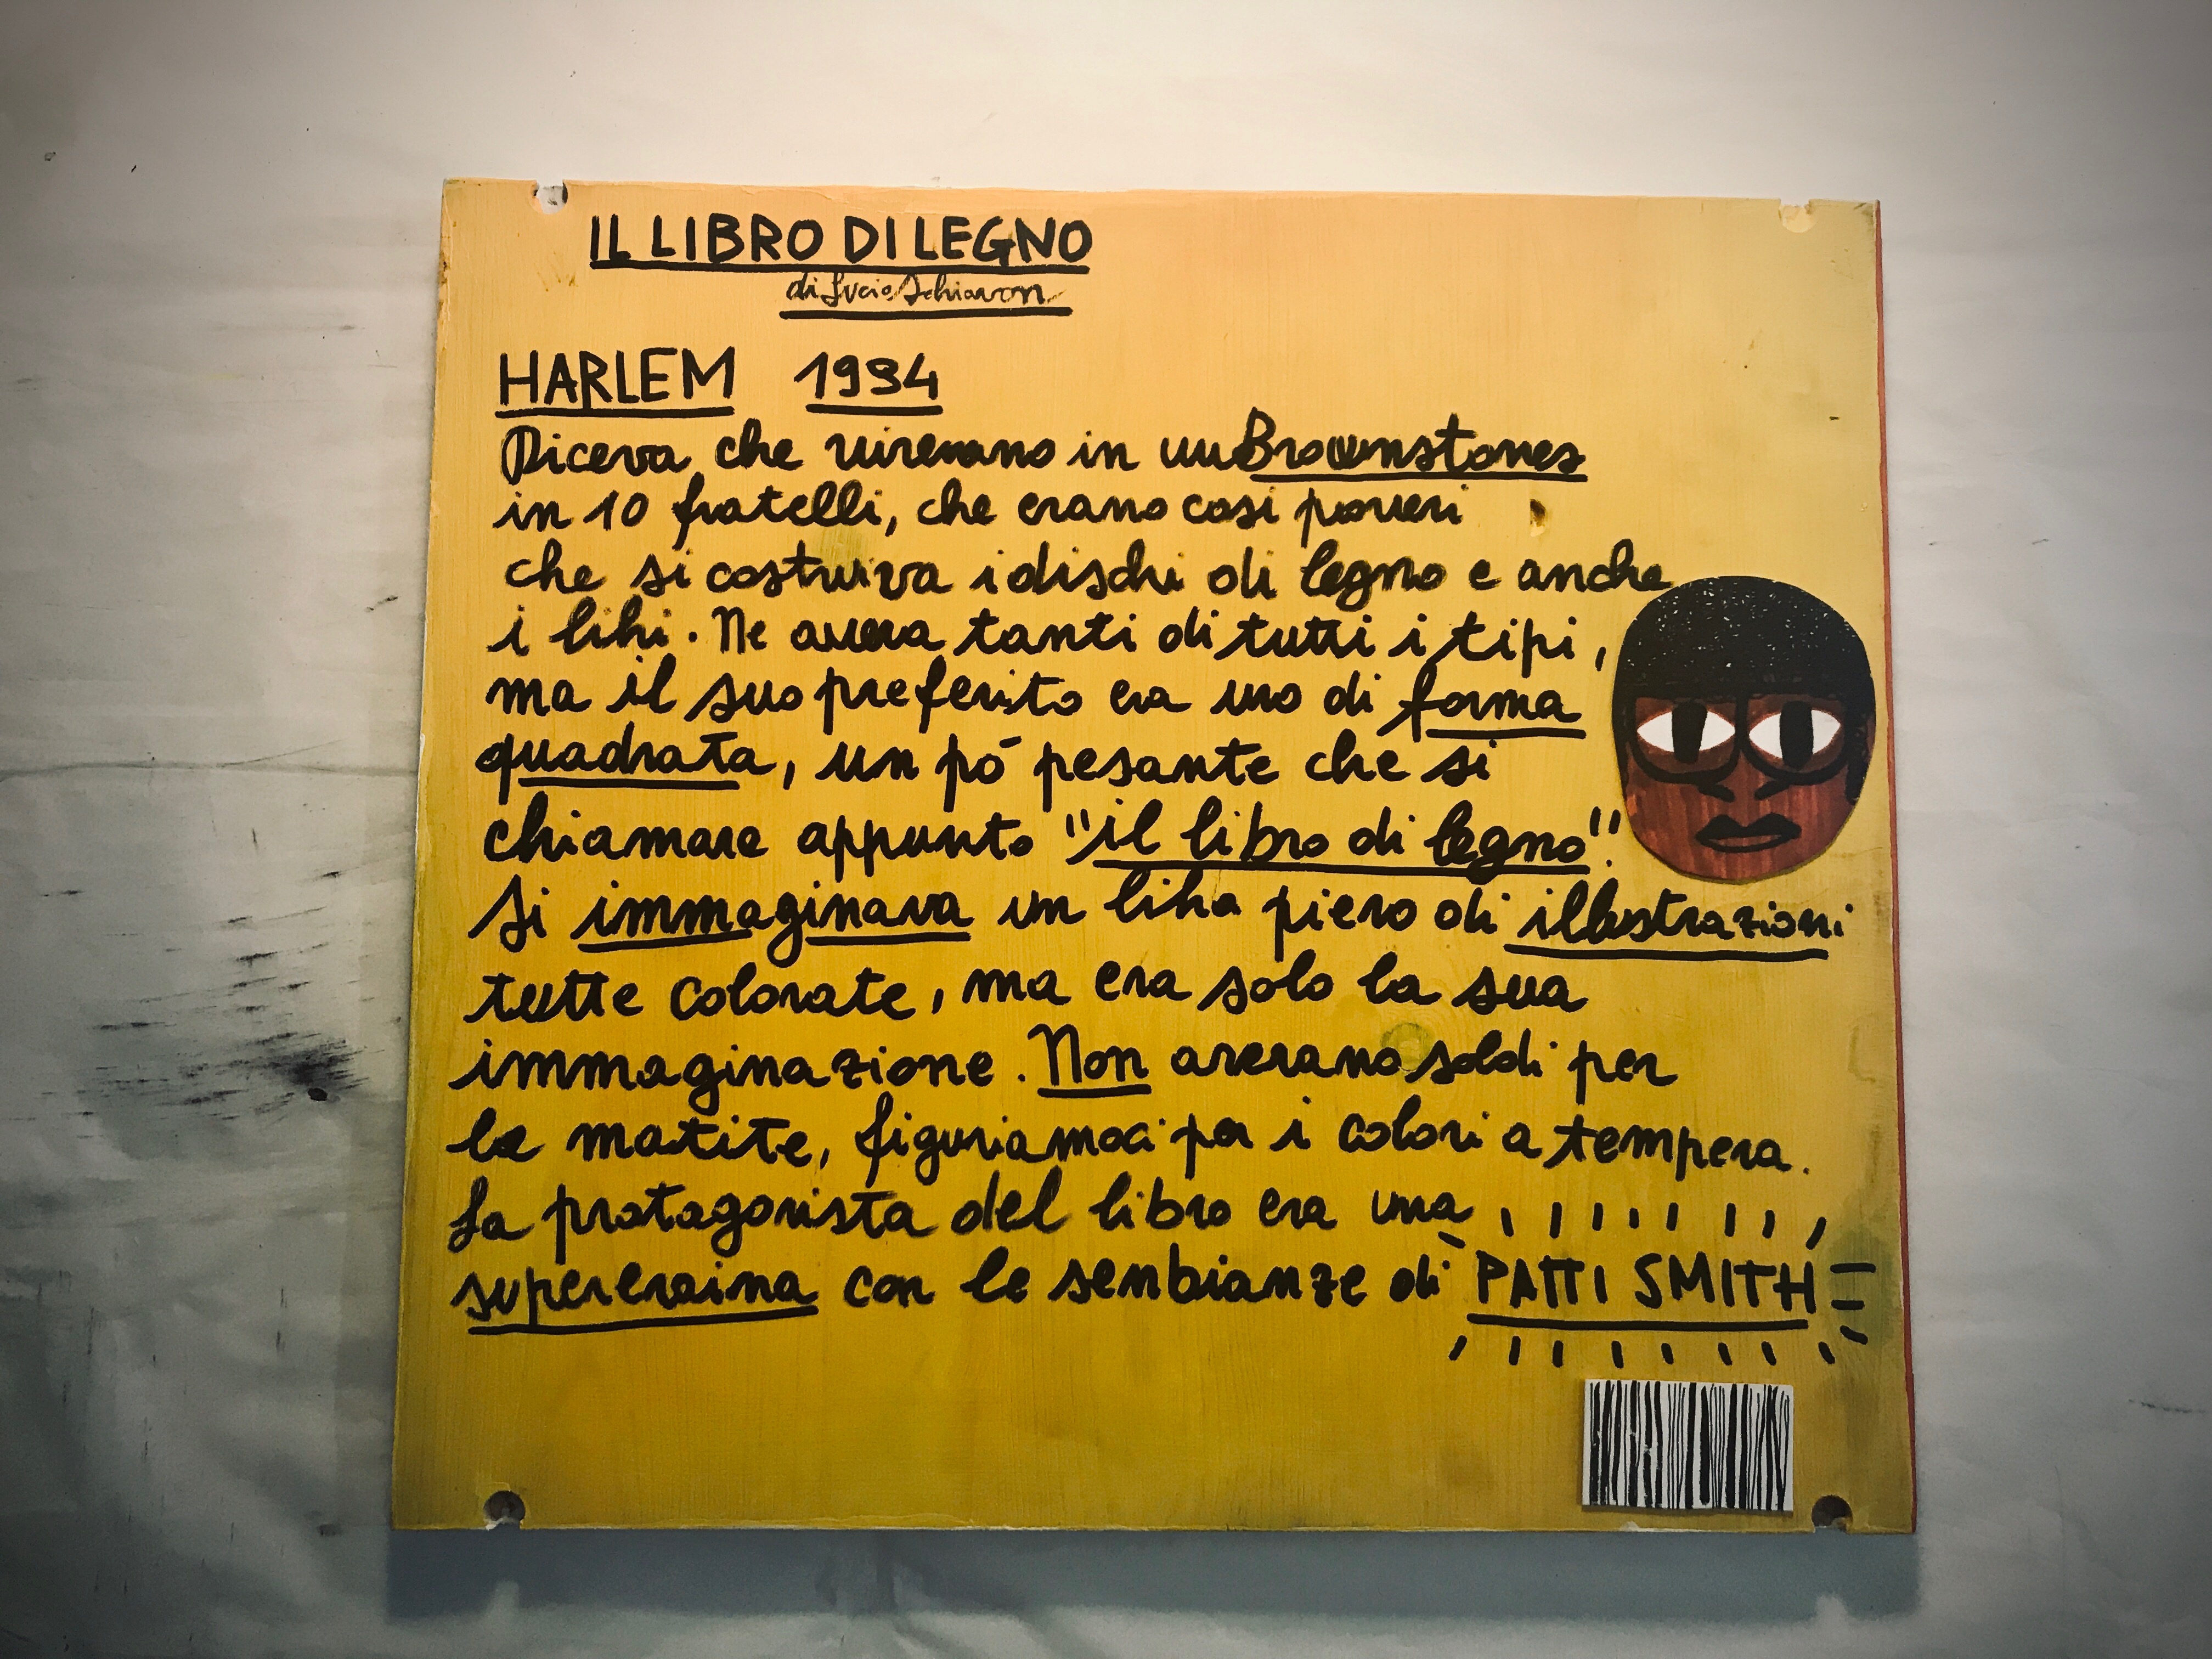 IL LIBRO DI LEGNO
di Lucio Schiavon
HARLEM 1934
Diceva che vivevano in un Brownstones
in 10 fratelli, che erano così poveri
che si costruiva i dischi di legno e anche
i libri. Ne aveva tanti di tutti i tipi,
ma il suo preferito era uno di forma
quadrata, un pó pesante che si
chiamare appunto "il libro di legno".
Si immaginava un libro pieno di illustrazioni
tutte colorate, ma era solo la sua
immaginazione. Non avevano soldi per
le matite, figuriamoci per i colori a tempera.
La protagonista del libro era una
supereroina con le senbianze di PATTI SMITH